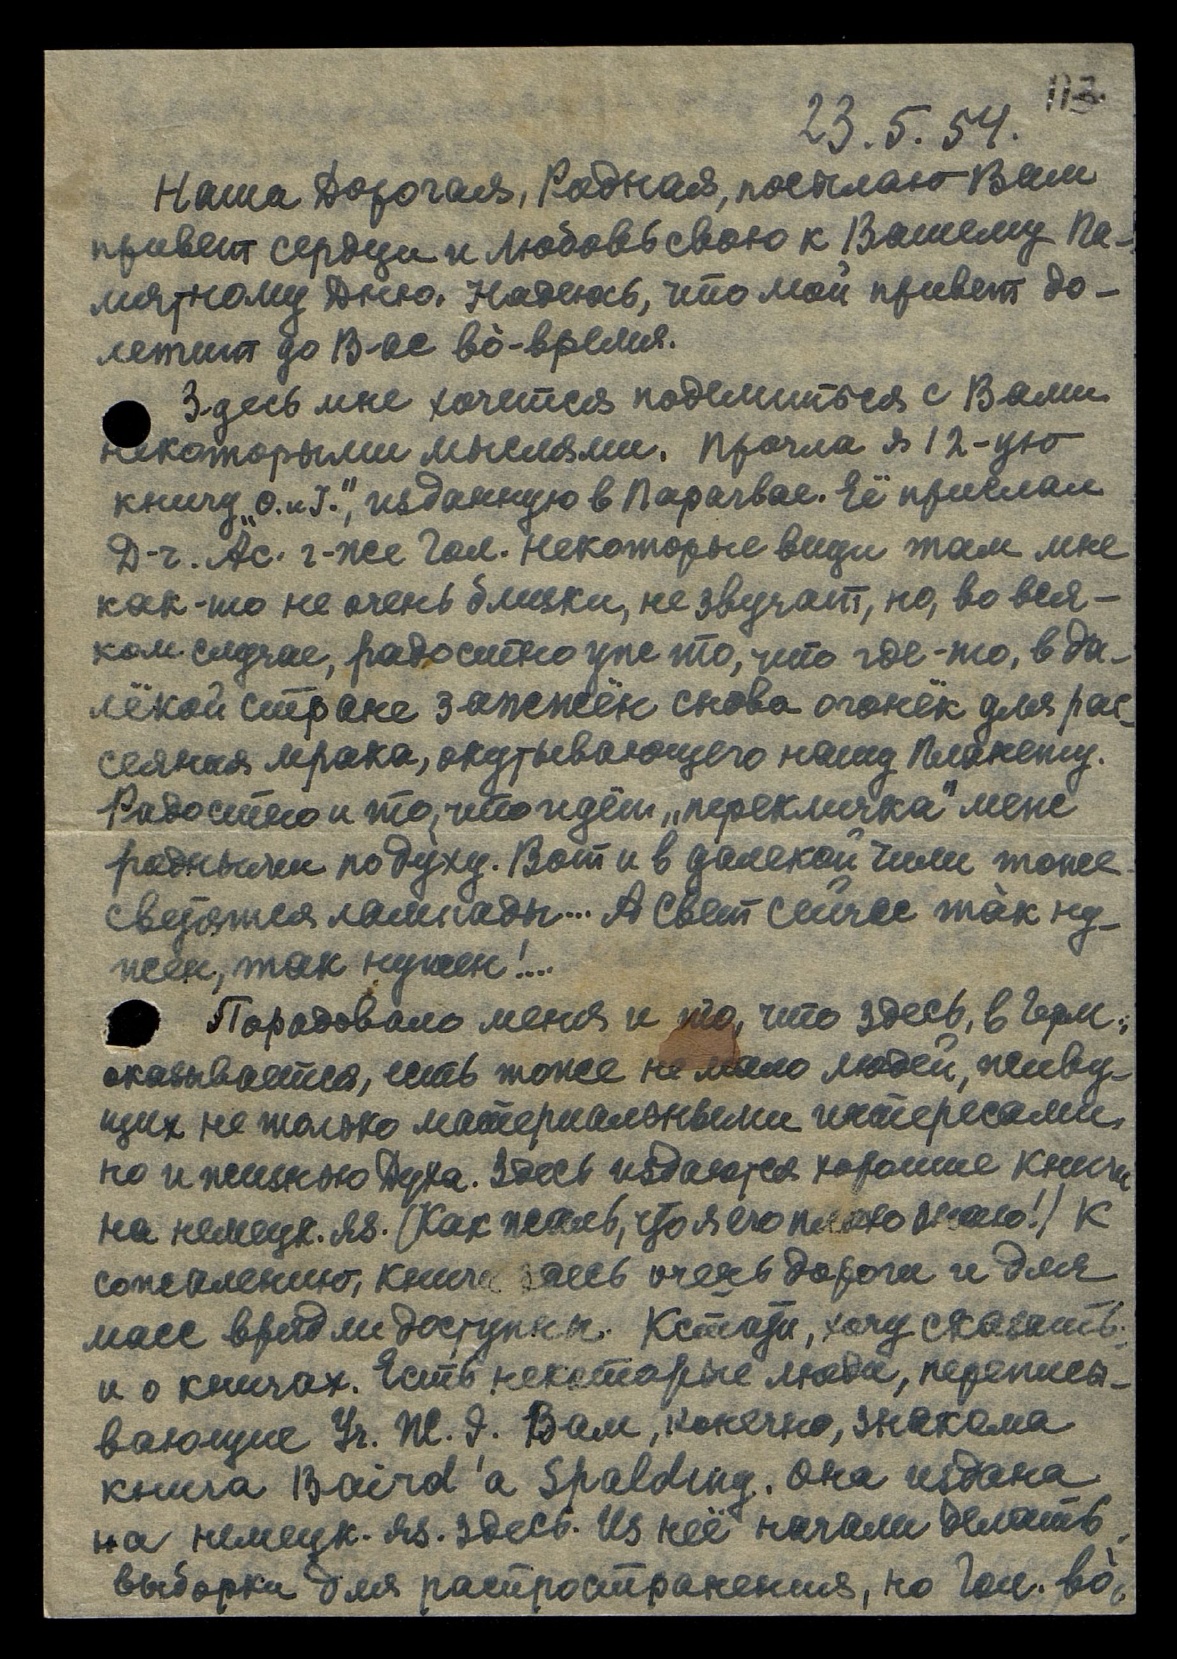 113.
23.5.54.
Наша Дорогая, Родная, посылаю Вам
привет сердца и любовь свою к Вашему Па-
мятному Дню. Надеюсь, что мой привет до-
летит до В-ас во̀-время.
Здесь мне хочется поделиться с Вами
некоторыми мыслями. Прочла я 12-ую
книгу „О. и Г.", изданную в Парагвае. Её прислал
Д-г. Ас. г-же Гол. Некоторые вещи там мне
как-то не очень близки, не звучат, но, во вся-
ком случае, радостно уже то, что где-то, в да-
лёкой стране зажжён снова огонёк для рас-
сеяния мрака, окутывающего нашу Планету.
Радостно и то, что идёт „перекличка" меж
родными по духу. Вот и в далекой Чили тоже
светятся лампады... А Свет сейчас та̀к ну-
жен, так нужен!...
Порадовало меня и то, что здесь, в Герм.,
оказывается, есть тоже не мало людей, живу-
щих не только материальными интересами,
но и жизнью Духа. Здесь издаются хорошие книги
на немецк. яз. (Как жаль, что я его плохо знаю!) К
сожалению, книги здесь очень дороги и для
масс вряд ли доступны. Кстати, хочу сказать
и о книгах. Есть некоторые люди, переписы-
вающие Уч. Ж. Э. Вам, конечно, знакома
книга Baird'а Spalding. Она издана
на немецк. яз. здесь. Из неё начали делать
выборки для распространения, но Гол. во̀-